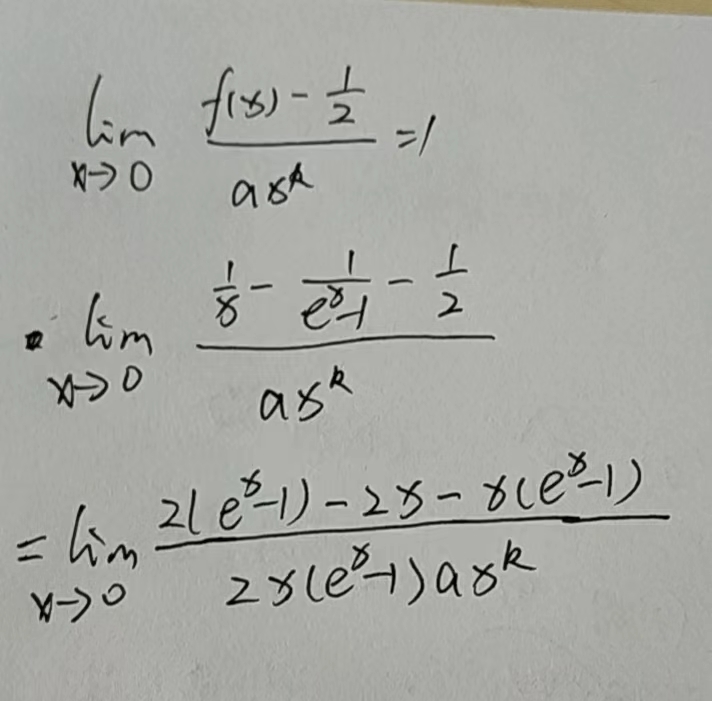 lim_{x→0} \frac{f(x) - \frac{1}{2}}{ax^k} = 1
lim_{x→0} \frac{\frac{1}{x} - \frac{1}{e^x-1} - \frac{1}{2}}{ax^k}
= lim_{x→0} \frac{2(e^x-1) - 2x - x(e^x-1)}{2x(e^x-1)ax^k}